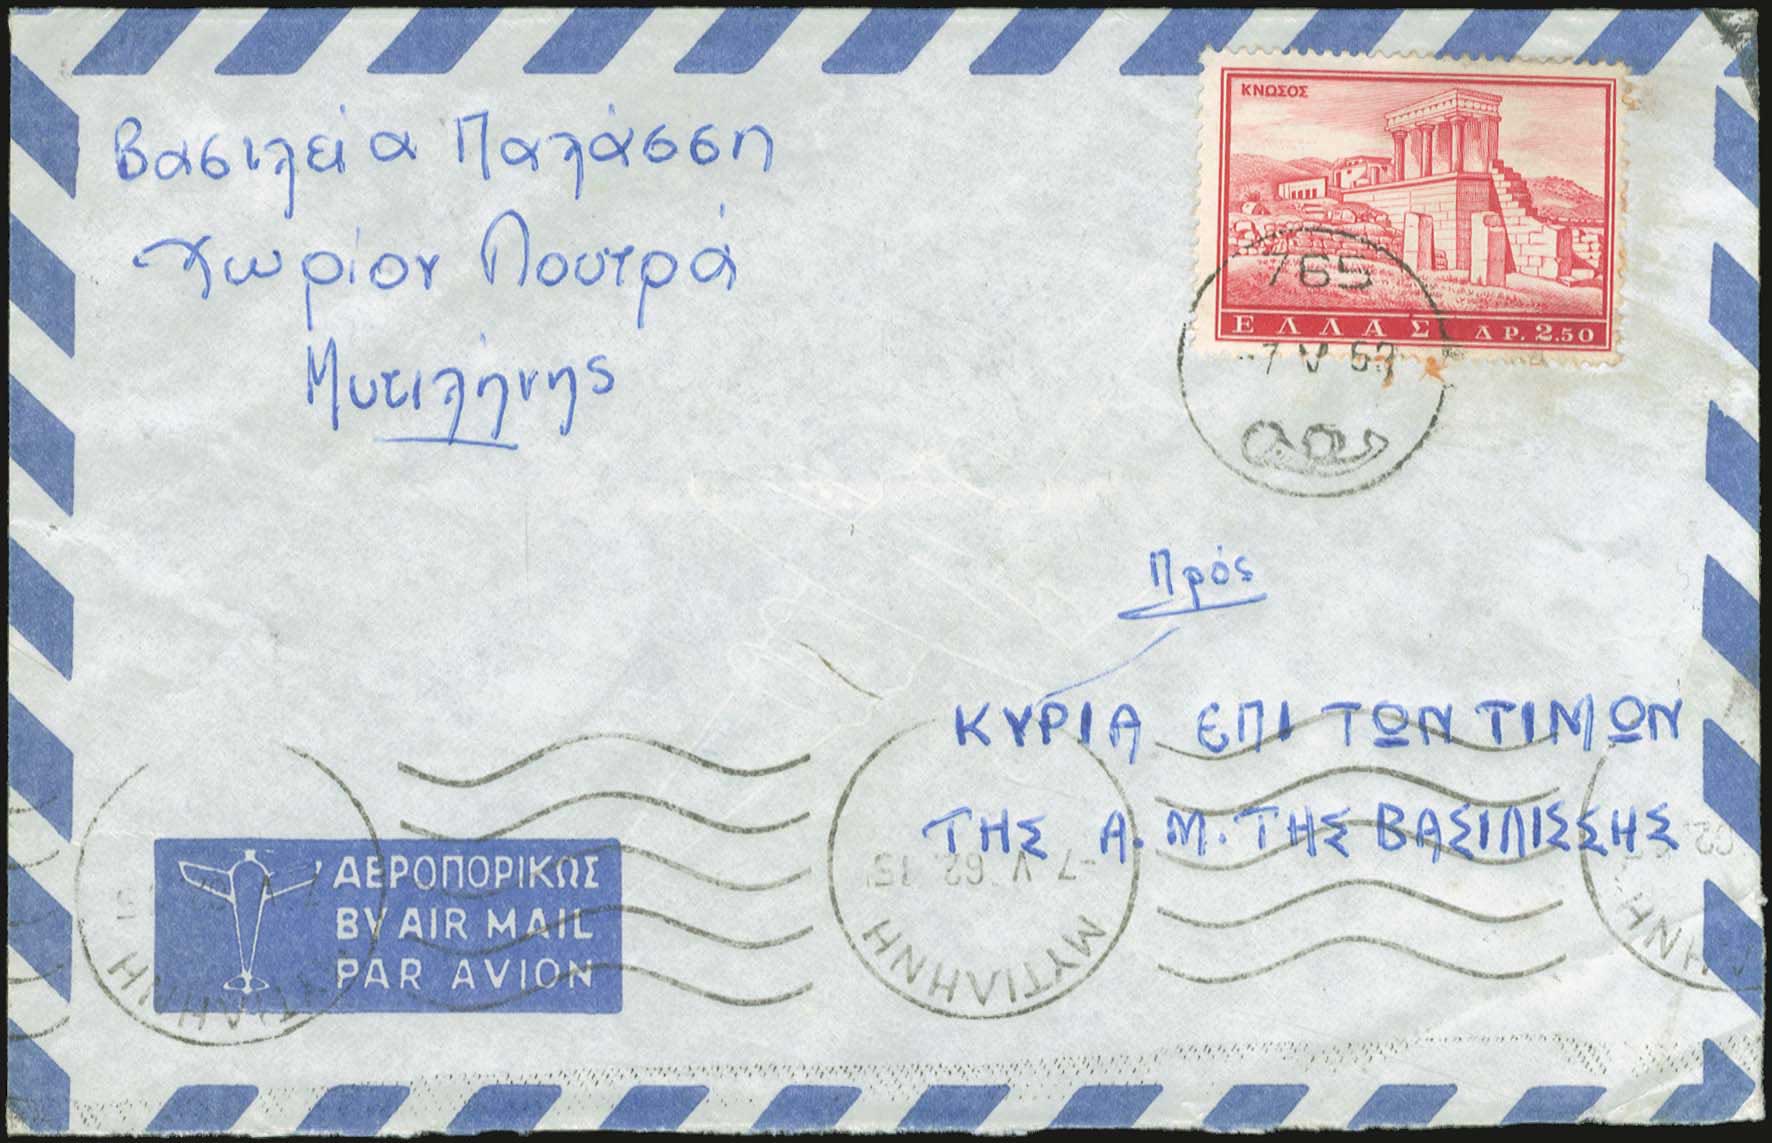 Βασιλεία Παλάσση
Χωρίον Λουτρά
Μυτιλήνης
ΚΝΩΣΟΣ
ΕΛΛΑΣ ΔΡ. 2.50
765
-7 V 62
Πρός
ΚΥΡΙΑ ΕΠΙ ΤΩΝ ΤΙΜΩΝ
ΤΗΣ Α. Μ. ΤΗΣ ΒΑΣΙΛΙΣΣΗΣ
ΑΕΡΟΠΟΡΙΚΩΣ
BY AIR MAIL
PAR AVION
ΜΥΤΙΛΗΝΗ
-7 V 62 15
ΜΥΤΙΛΗΝΗ